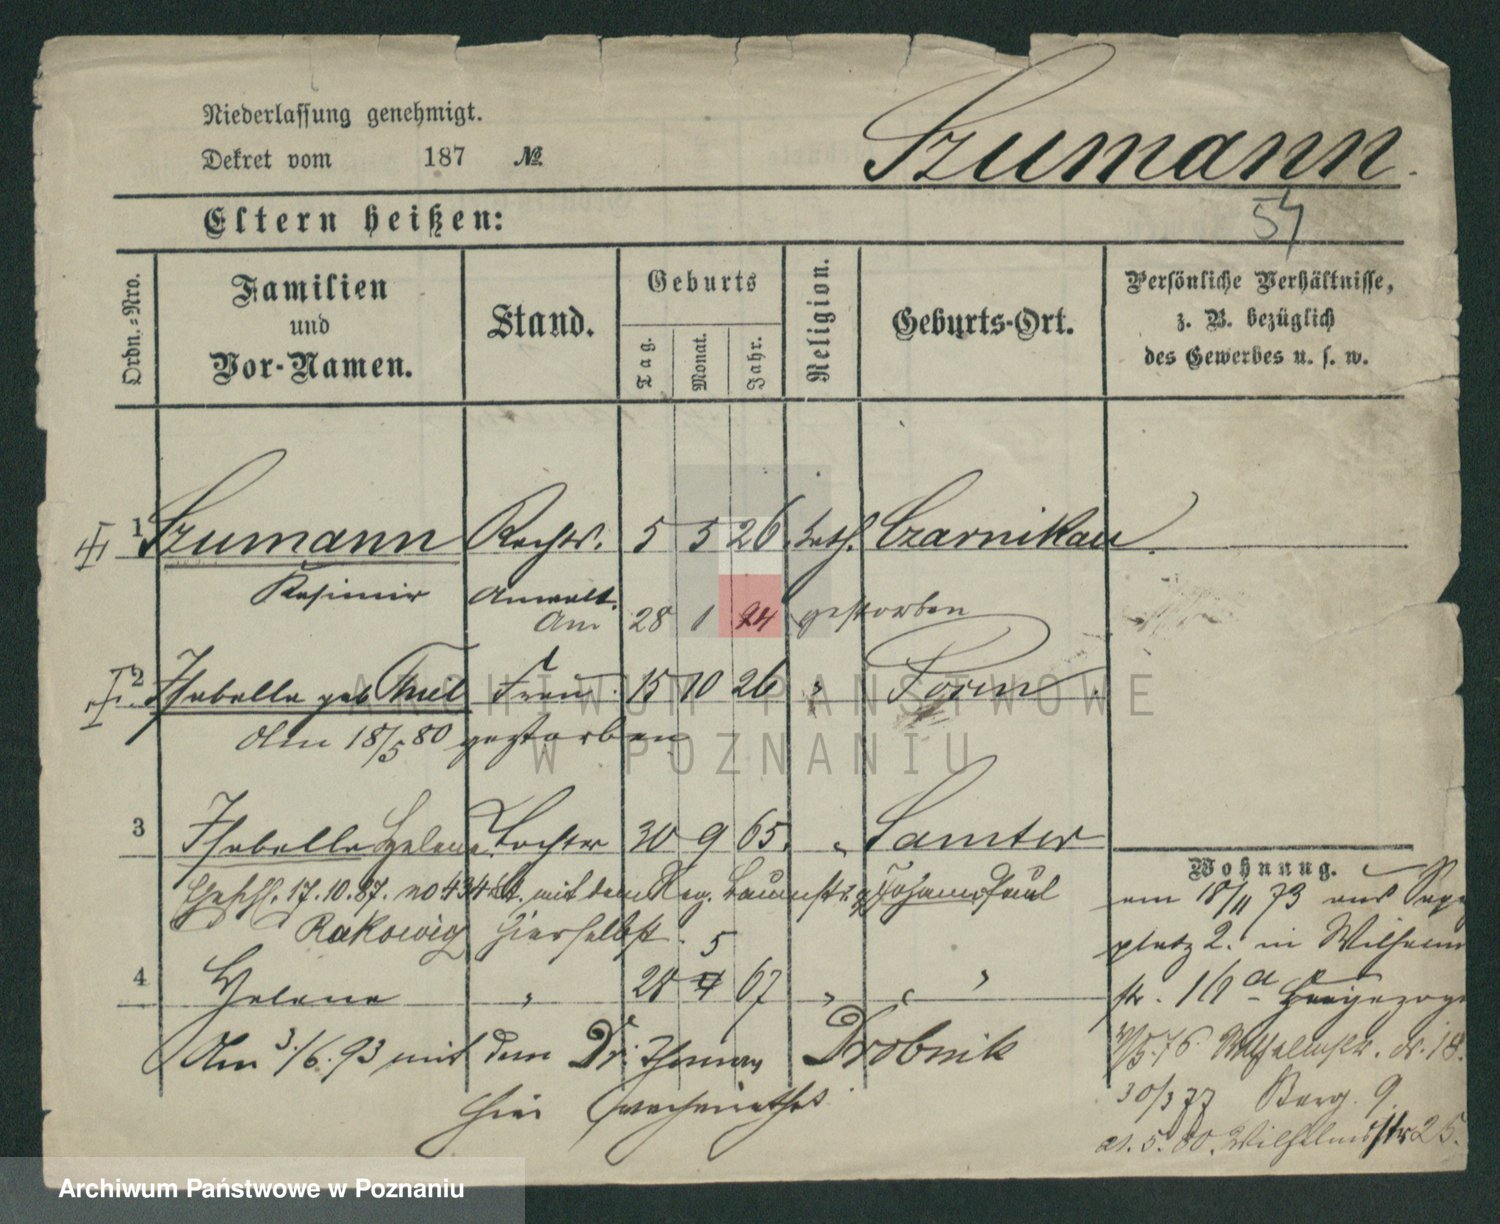 Niederlassung genehmigt.
Dekret vom 187 №
Szumann.
54
Eltern heißen:
Ordn.-Nro.
Familien
und
Vor-Namen.
Stand.
Geburts
Tag.
Monat.
Jahr.
Religion.
Geburts-Ort.
Persönliche Verhältnisse,
z. B. bezüglich
des Gewerbes u. s. w.
1 Szumann Rechts. 5 5 26 kath. Czarnikau.
Kasimir Anwalt.
Am 28 1 94 gestorben
2 Isabella geb Thiel Frau 15 10 26 "
Am 18/5 80 gestorben
ARCHIWUM PAŃSTWOWE
W POZNANIU
3 Isabella Helene Tochter 30 9 65. " Samter
17.10.87. no 434 mit dem Reg. Johann Paul
Rakowicz hierselbst.
5
4 Helene " 28 4 67 " " "
Am 3./6.93 mit dem Dr. Thomas Drobnik
hier verheirathet
Wohnung.
am 18/11 73 aus
platz 2. in Wilhelm
str. 16a
Wilhelmstr. 18.
30/3 77 Berg. 9.
21.5.80. Wilhelmsstr 25.
Archiwum Państwowe w Poznaniu